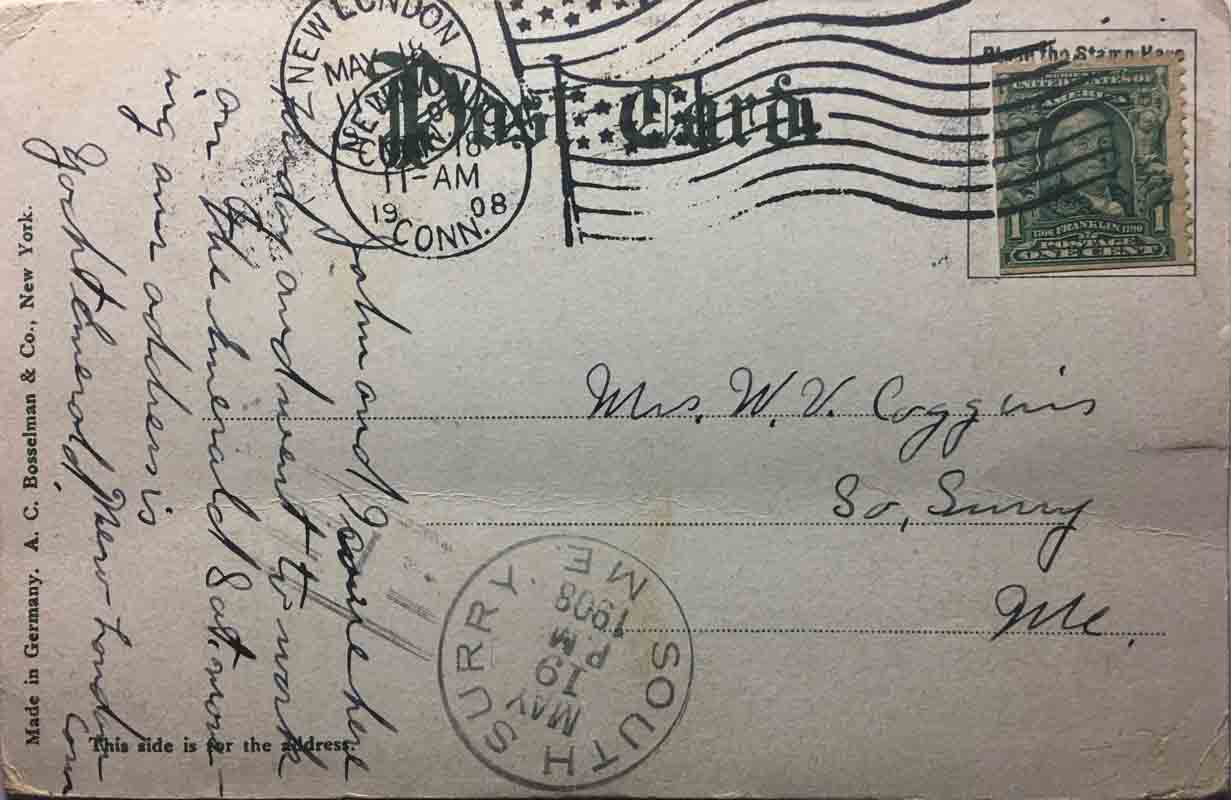 Post Card
Place the Stamp Here
NEW LONDON
MAY 18
11-AM
1908
CONN.
SERIES 1902
UNITED STATES OF
AMERICA
1 1706 FRANKLIN 1790 1
POSTAGE
ONE CENT
Mrs. W. V. Coggins
So, Surry
Me.
John and I came here
and went to work
on the Emerald Sat. morn-
ing our address is
Yacht Emerald, New London
Conn
SOUTH SURRY.
ME
MAY
19
PM
1908
This side is for the address.
Made in Germany. A. C. Bosselman & Co., New York.